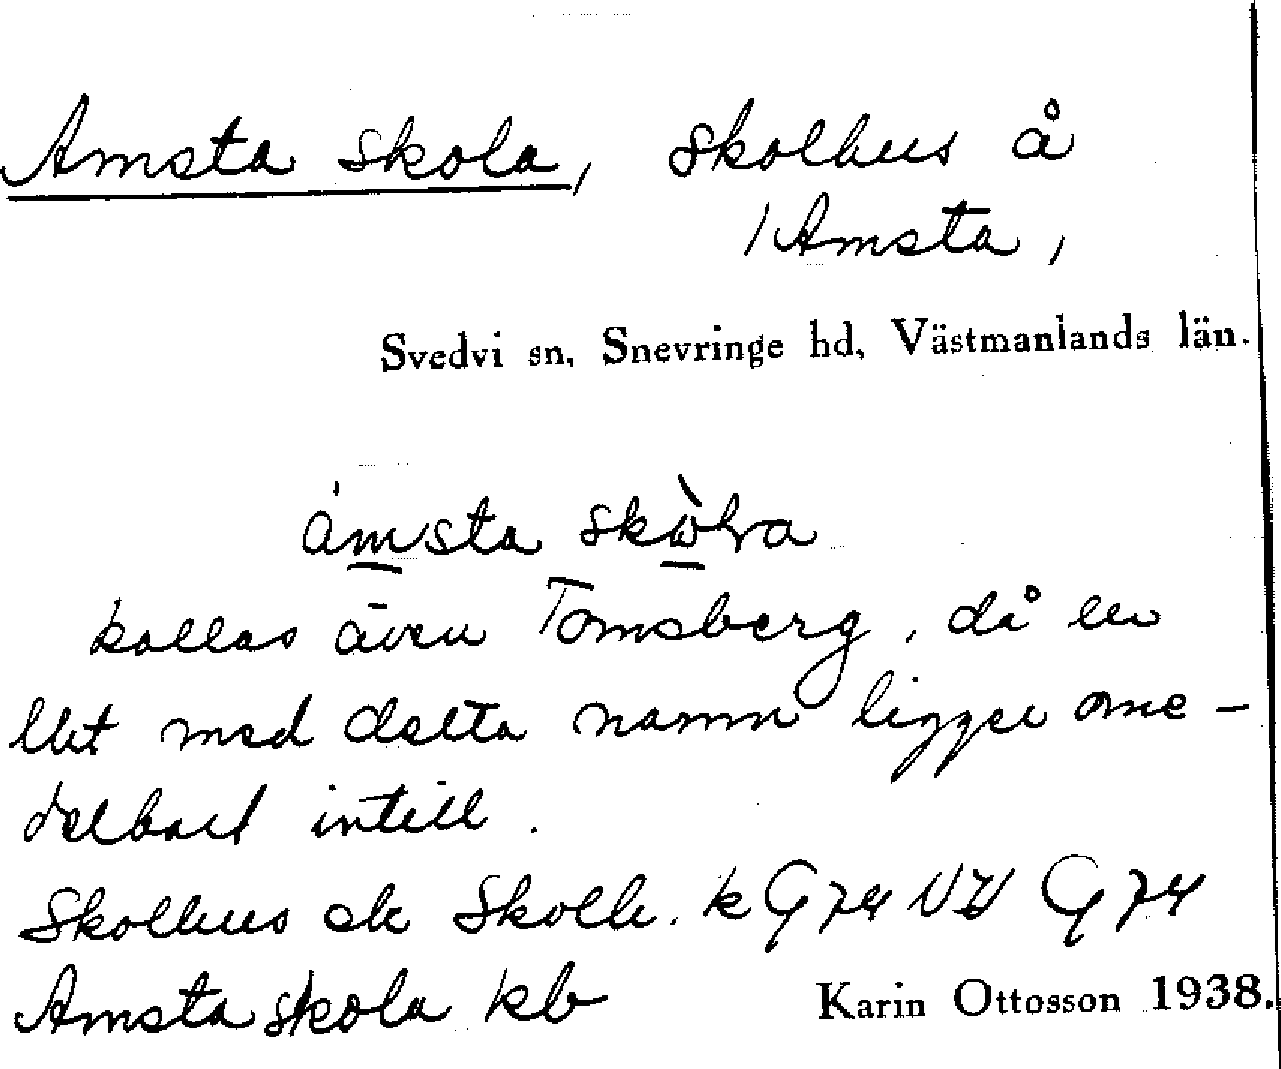 Amsta skola, skolhus å
/Amsta,
Svedvi sn, Snevringe hd, Västmanlands län.
ámsta skὼla
kallas även Tomsberg, då en
llet med detta namn ligger ome-
delbart intill.
Skolhus ek Skolh. k G 74 NV G 74
Amsta skola kb
Karin Ottosson 1938.